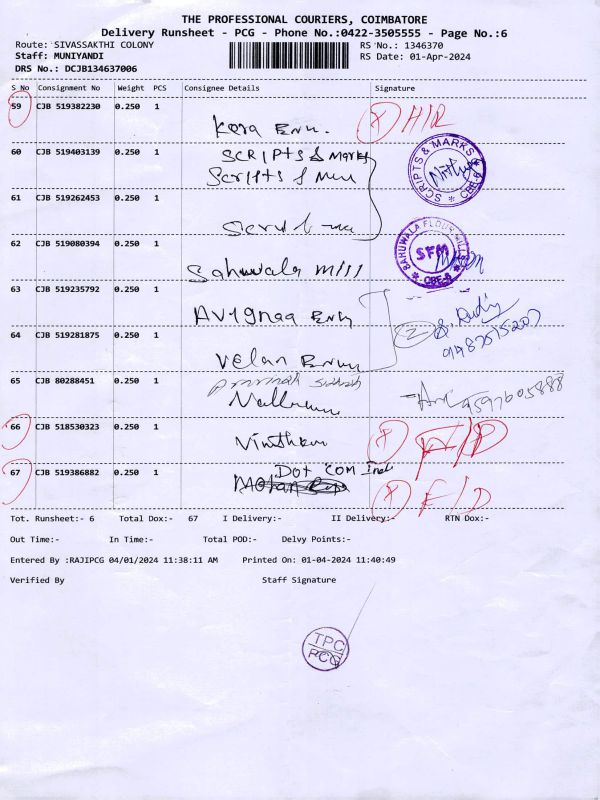 THE PROFESSIONAL COURIERS, COIMBATORE
Delivery Runsheet - PCG - Phone No.:0422-3505555 - Page No.:6
Route: SIVASSAKTHI COLONY RS No.: 1346370
Staff: MUNIYANDI RS Date: 01-Apr-2024
DRS No.: DCJB134637006
S No Consignment No Weight PCS Consignee Details Signature
59 CJB 519382230 0.250 1
60 CJB 519403139 0.250 1 SCRIPTS & Marks
Scripts &
SCRIPTS & MARKS * CBE-6 *
61 CJB 519262453 0.250 1
62 CJB 519080394 0.250 1 Sahuwala Mill
SAHUWALA FLOUR MILLS * CBE-6 *
SFM
63 CJB 519235792 0.250 1 Avignaa
2
64 CJB 519281875 0.250 1 Velan
65 CJB 80288451 0.250 1
9597605888
66 CJB 518530323 0.250 1 F/D
67 CJB 519386882 0.250 1 DOT COM F/D
Tot. Runsheet:- 6 Total Dox:- 67 I Delivery:- II Delivery:- RTN Dox:-
Out Time:- In Time:- Total POD:- Delvy Points:-
Entered By :RAJIPCG 04/01/2024 11:38:11 AM Printed On: 01-04-2024 11:40:49
Verified By Staff Signature
TPC
PCG